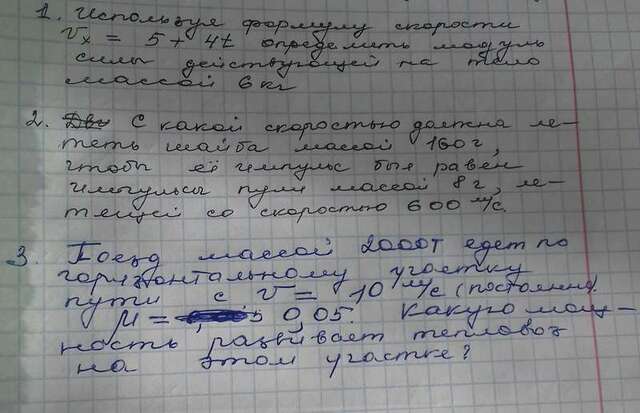 1. Используя формулу скорости
Vx = 5 + 4t определить модуль
силы действующей на тело
массой 6 кг
2. С какой скоростью должна ле-
теть шайба массой 160 г,
чтобы её импульс был равен
импульсу пули массой 8 г, ле-
тящей со скоростью 600 м/с.
3. Поезд массой 2000т едет по
горизонтальному участку
пути с V = 10 м/с (постоянно).
μ = 0,05. Какую мощ-
ность развивает тепловоз
на этом участке?